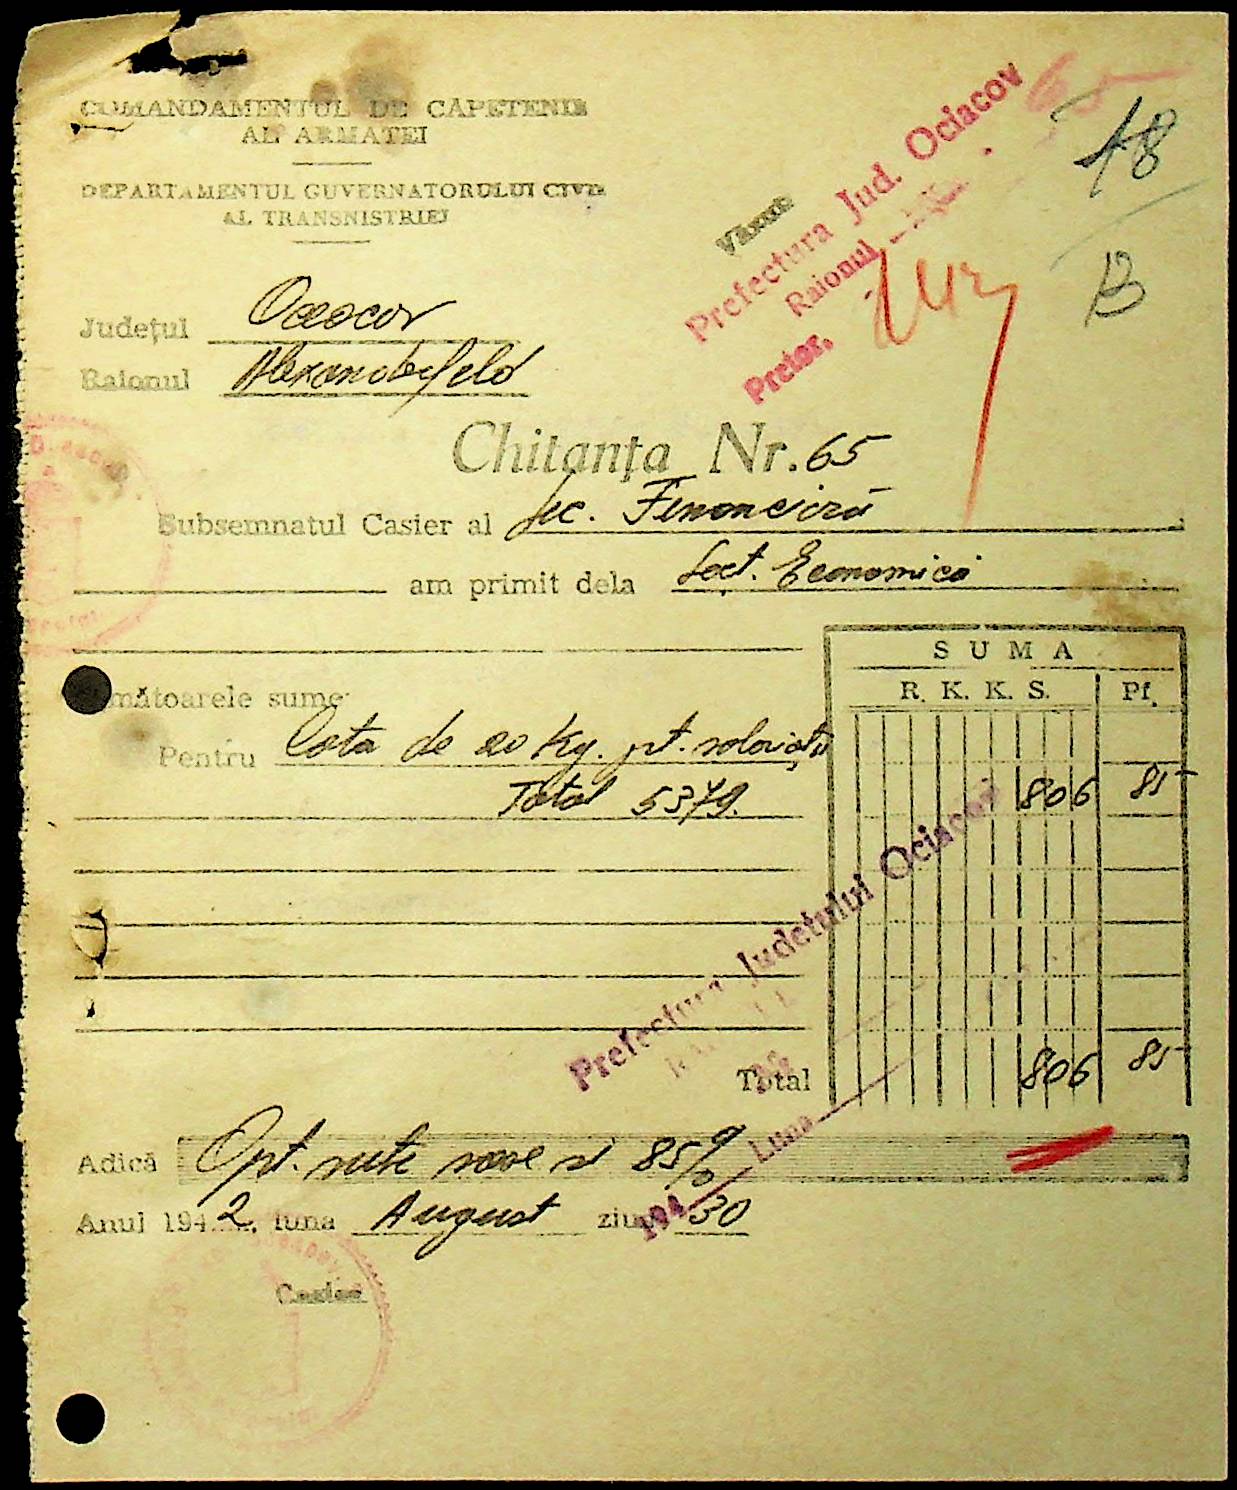 COMANDAMENTUL DE CAPETENIE
AL ARMATEI
DEPARTAMENTUL GUVERNATORULUI CIVIL
AL TRANSNISTRIEI
65
18
B
Văzut
Prefectura Jud. Ociacov
Raionul
Pretor,
Județul Oceacov
Raionul Alexanderfeld
Chitanța Nr. 65
Subsemnatul Casier al Sec. Financiară
am primit dela Sect. Economică
mătoarele sume
SUMA
R. K. K. S. Pf.
Pentru Cota de 20 Kg. pt. salariați
Total 5379. 806 85
Prefectura Judetului Ociacov
Total 806 85
Luna
194
Adică Opt. sute șase și 85%
Anul 1942, luna August ziua 30
Casier